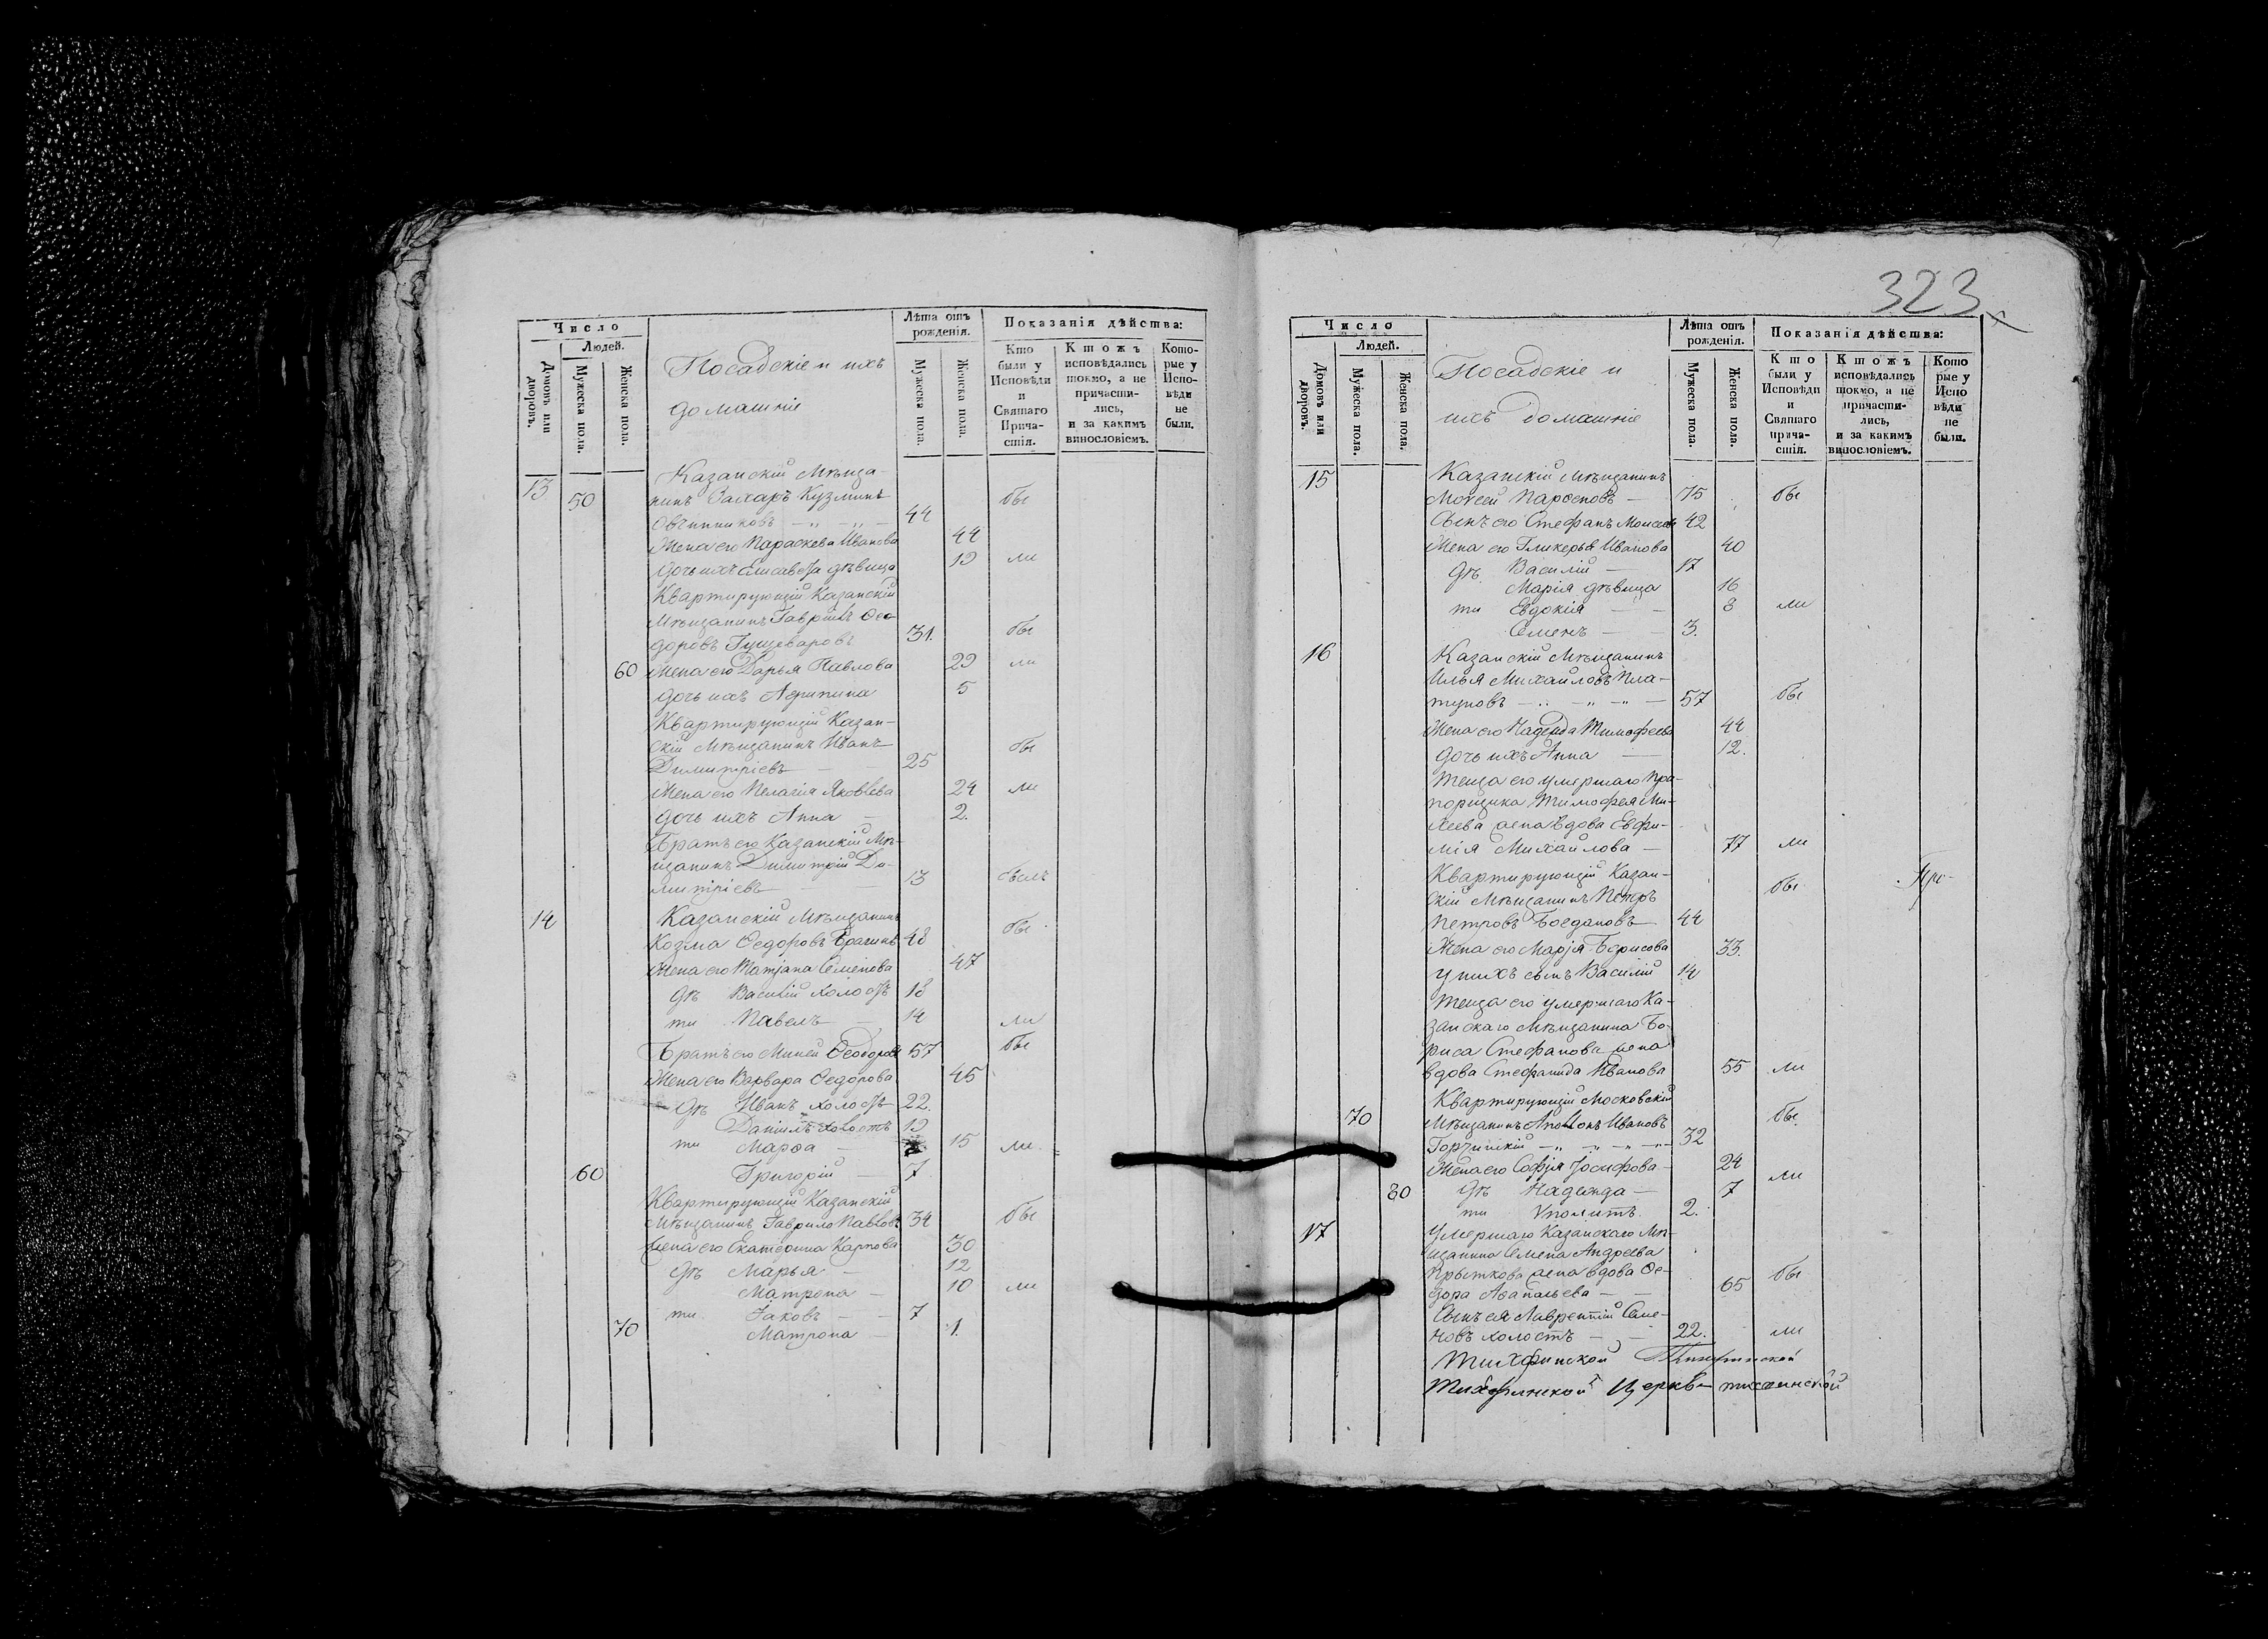 323
Число
Людей.
Домовъ или дворовъ.
Мужеска пола.
Женска пола.
Посадскіе и ихъ
домашніе
Лѣта отъ рожденія.
Мужеска пола.
Женска пола.
Показанія дѣйства:
Кто были у Исповѣди и Святаго Прича-стія.
Ктожъ исповѣдались токмо, а не причасти-лись, и за какимъ винословіемъ.
Кото-рые у Испо-вѣди не были.
Казанскій Мѣща-
13 50 нинъ Захаръ Кузминъ бы
Овчинниковъ 44
Жена его Параскева Иванова 44
Дочь ихъ Елисавета дѣвица 19 ли
Квартирующій Казанскій
Мѣщанинъ Гавріилъ Ѳео-
доровъ 31. бы
60 Жена его Дарья Павлова 29 ли
Дочь ихъ Агрипина 5
Квартирующій Казан-
скій Мѣщанинъ Иванъ бы
Димитріевъ 25
Жена его Пелагія Яковлева 24 ли
Дочь ихъ Анна 2.
Братъ его Казанскій Мѣ-
щанинъ Димитрій Ди-
митріевъ 13 былъ
14 Казанскій Мѣщанинъ бы
Козма Ѳедоровъ 48
Жена его Татіана Семенова 47
Дѣ Василій холостъ 18
ти Павелъ 14 ли
Братъ его Миней Ѳеодоровъ 57 бы
Жена его Варвара Ѳедорова 45
Дѣ Иванъ холостъ 22.
Даніилъ холостъ 19
ти Марѳа 15 ли
60 Григорій 7
Квартирующій Казанскій
Мѣщанинъ Гаврило Павловъ 34 бы
Жена его Екатерина Карпова 30
Дѣ Марья 12
Матрона 10 ли
ти Іаковъ 7
70 Матрона 1.
Число
Людей.
Домовъ или дворовъ.
Мужеска пола.
Женска пола.
Посадскіе и
ихъ домашніе
Лѣта отъ рожденія.
Мужеска пола.
Женска пола.
Показанія дѣйства:
Кто были у Исповѣди и Святаго прича-стія.
Ктожъ исповѣдались токмо, а не причасти-лись, и за какимъ винословіемъ.
Кото рые у Испо вѣди не были.
15 Казанскій Мѣщанинъ
Моѵсей Парѳеновъ 75 бы
Сынъ его Стефанъ Моисеевъ 42
Жена его Гликерья Иванова 40
Дѣ Василій 17
Марія дѣвица 16
ти Евдокія 8 ли
Семенъ 3.
16 Казанскій Мѣщанинъ
Илья Михайловъ Пла-
туновъ 57 бы
Жена его Надежда Тимофеева 44
Дочь ихъ Анна 12.
Теща его умершаго Пра-
порщика Тимофея Ми-
хеева жена вдова Евфи-
мія Михайлова 77 ли
Квартирующій Казан-
скій Мѣщанинъ Петръ бы
Петровъ Богдановъ 44
Жена его Марія Борисова 33.
У нихъ сынъ Василій 14
Теща его умершаго Ка-
занскаго Мѣщанина Бо-
риса Стефанова жена
вдова Стефанида Иванова 55 ли
Квартирующій Московскій
70 Мѣщанинъ Иванъовъ бы
32
Жена его Софія Іосифова 24
80 Дѣ Надежда 7 ли
ти Ѵполитъ 2.
17 Умершаго Казанскаго Мѣ-
щанина Семена Андреева
жена вдова Ѳе- бы
дора 65
Сынъ ея Лаврентій Семе-
новъ холостъ 22. ли
Тихфинской Тихфинской
Тихфинской Церкви